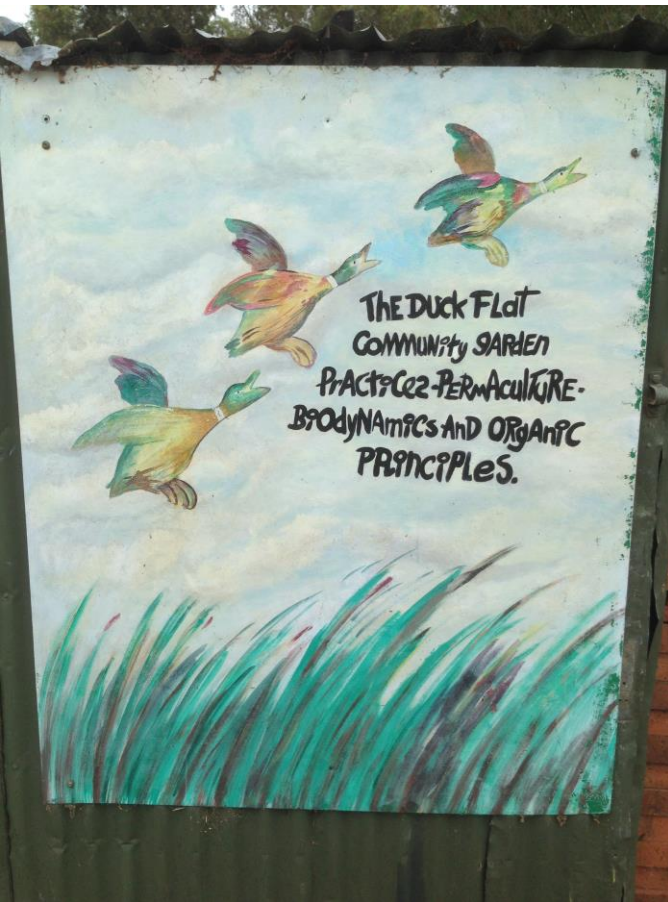 The Duck Flat
Community Garden
Practices-Permaculture-
Biodynamics and Organic
Principles.